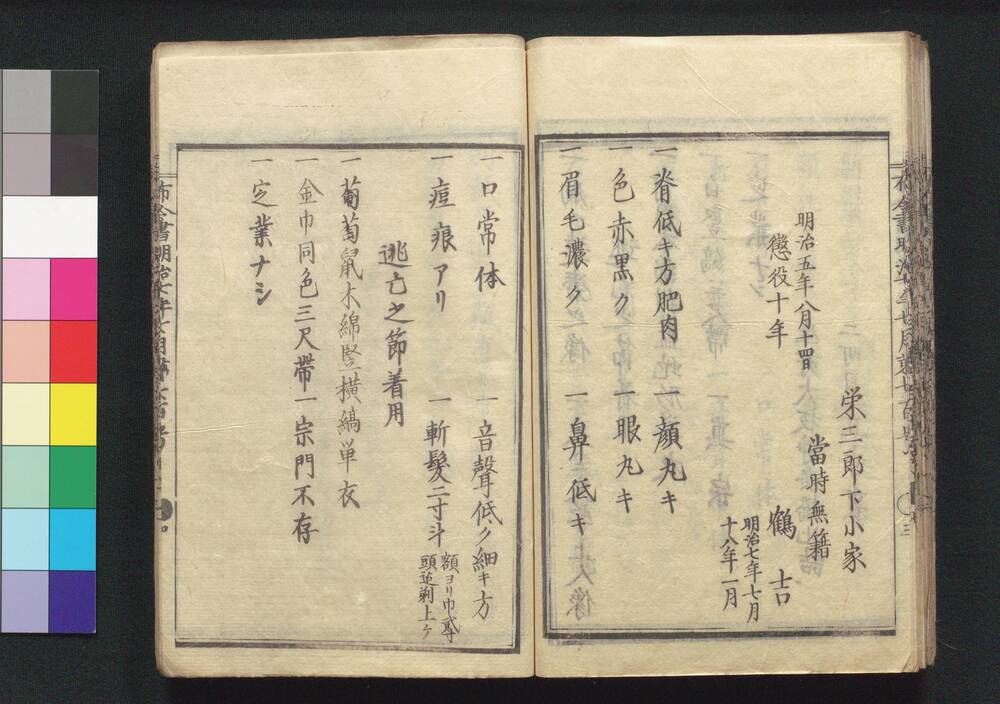 栄三郎下小家
當時無籍
明治五年八月十四日
懲役十年
鶴吉
明治七年七月
十八年一月
一脊低キ方肥肉 一顔丸キ
一色赤黒ク 一眼丸キ
一眉毛濃ク 一鼻低キ
一口常体 一音聲低ク細キ方
一痘痕アリ 一斬髮二寸斗
額ヨリ巾貳寸
頭迠剃上ケ
逃亡之節着用
一葡萄鼠木綿竪横縞単衣
一金巾同色三尺帯一宗門不存
一定業ナシ